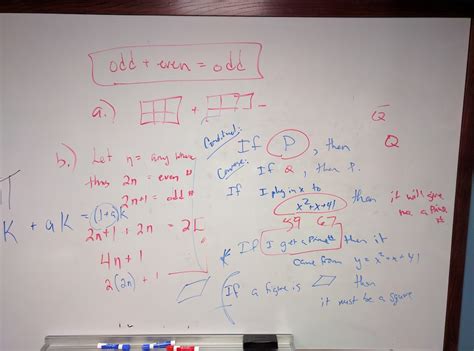 odd + even = odd
a.) + -
b.) Let n = any whole
thus 2n = even #
2n+1 = odd #
K + aK = (1+a)K
2n+1 + 2n = 2
4n+1
2(2n) + 1
Conditional: If P, then Q
Converse: If Q, then P.
If I plug in x to
x²+x+41 then it will give
me a Prime #
59 67
* If I get a Prime # then it
came from y = x²+x+41
If a figure is then
it must be a square